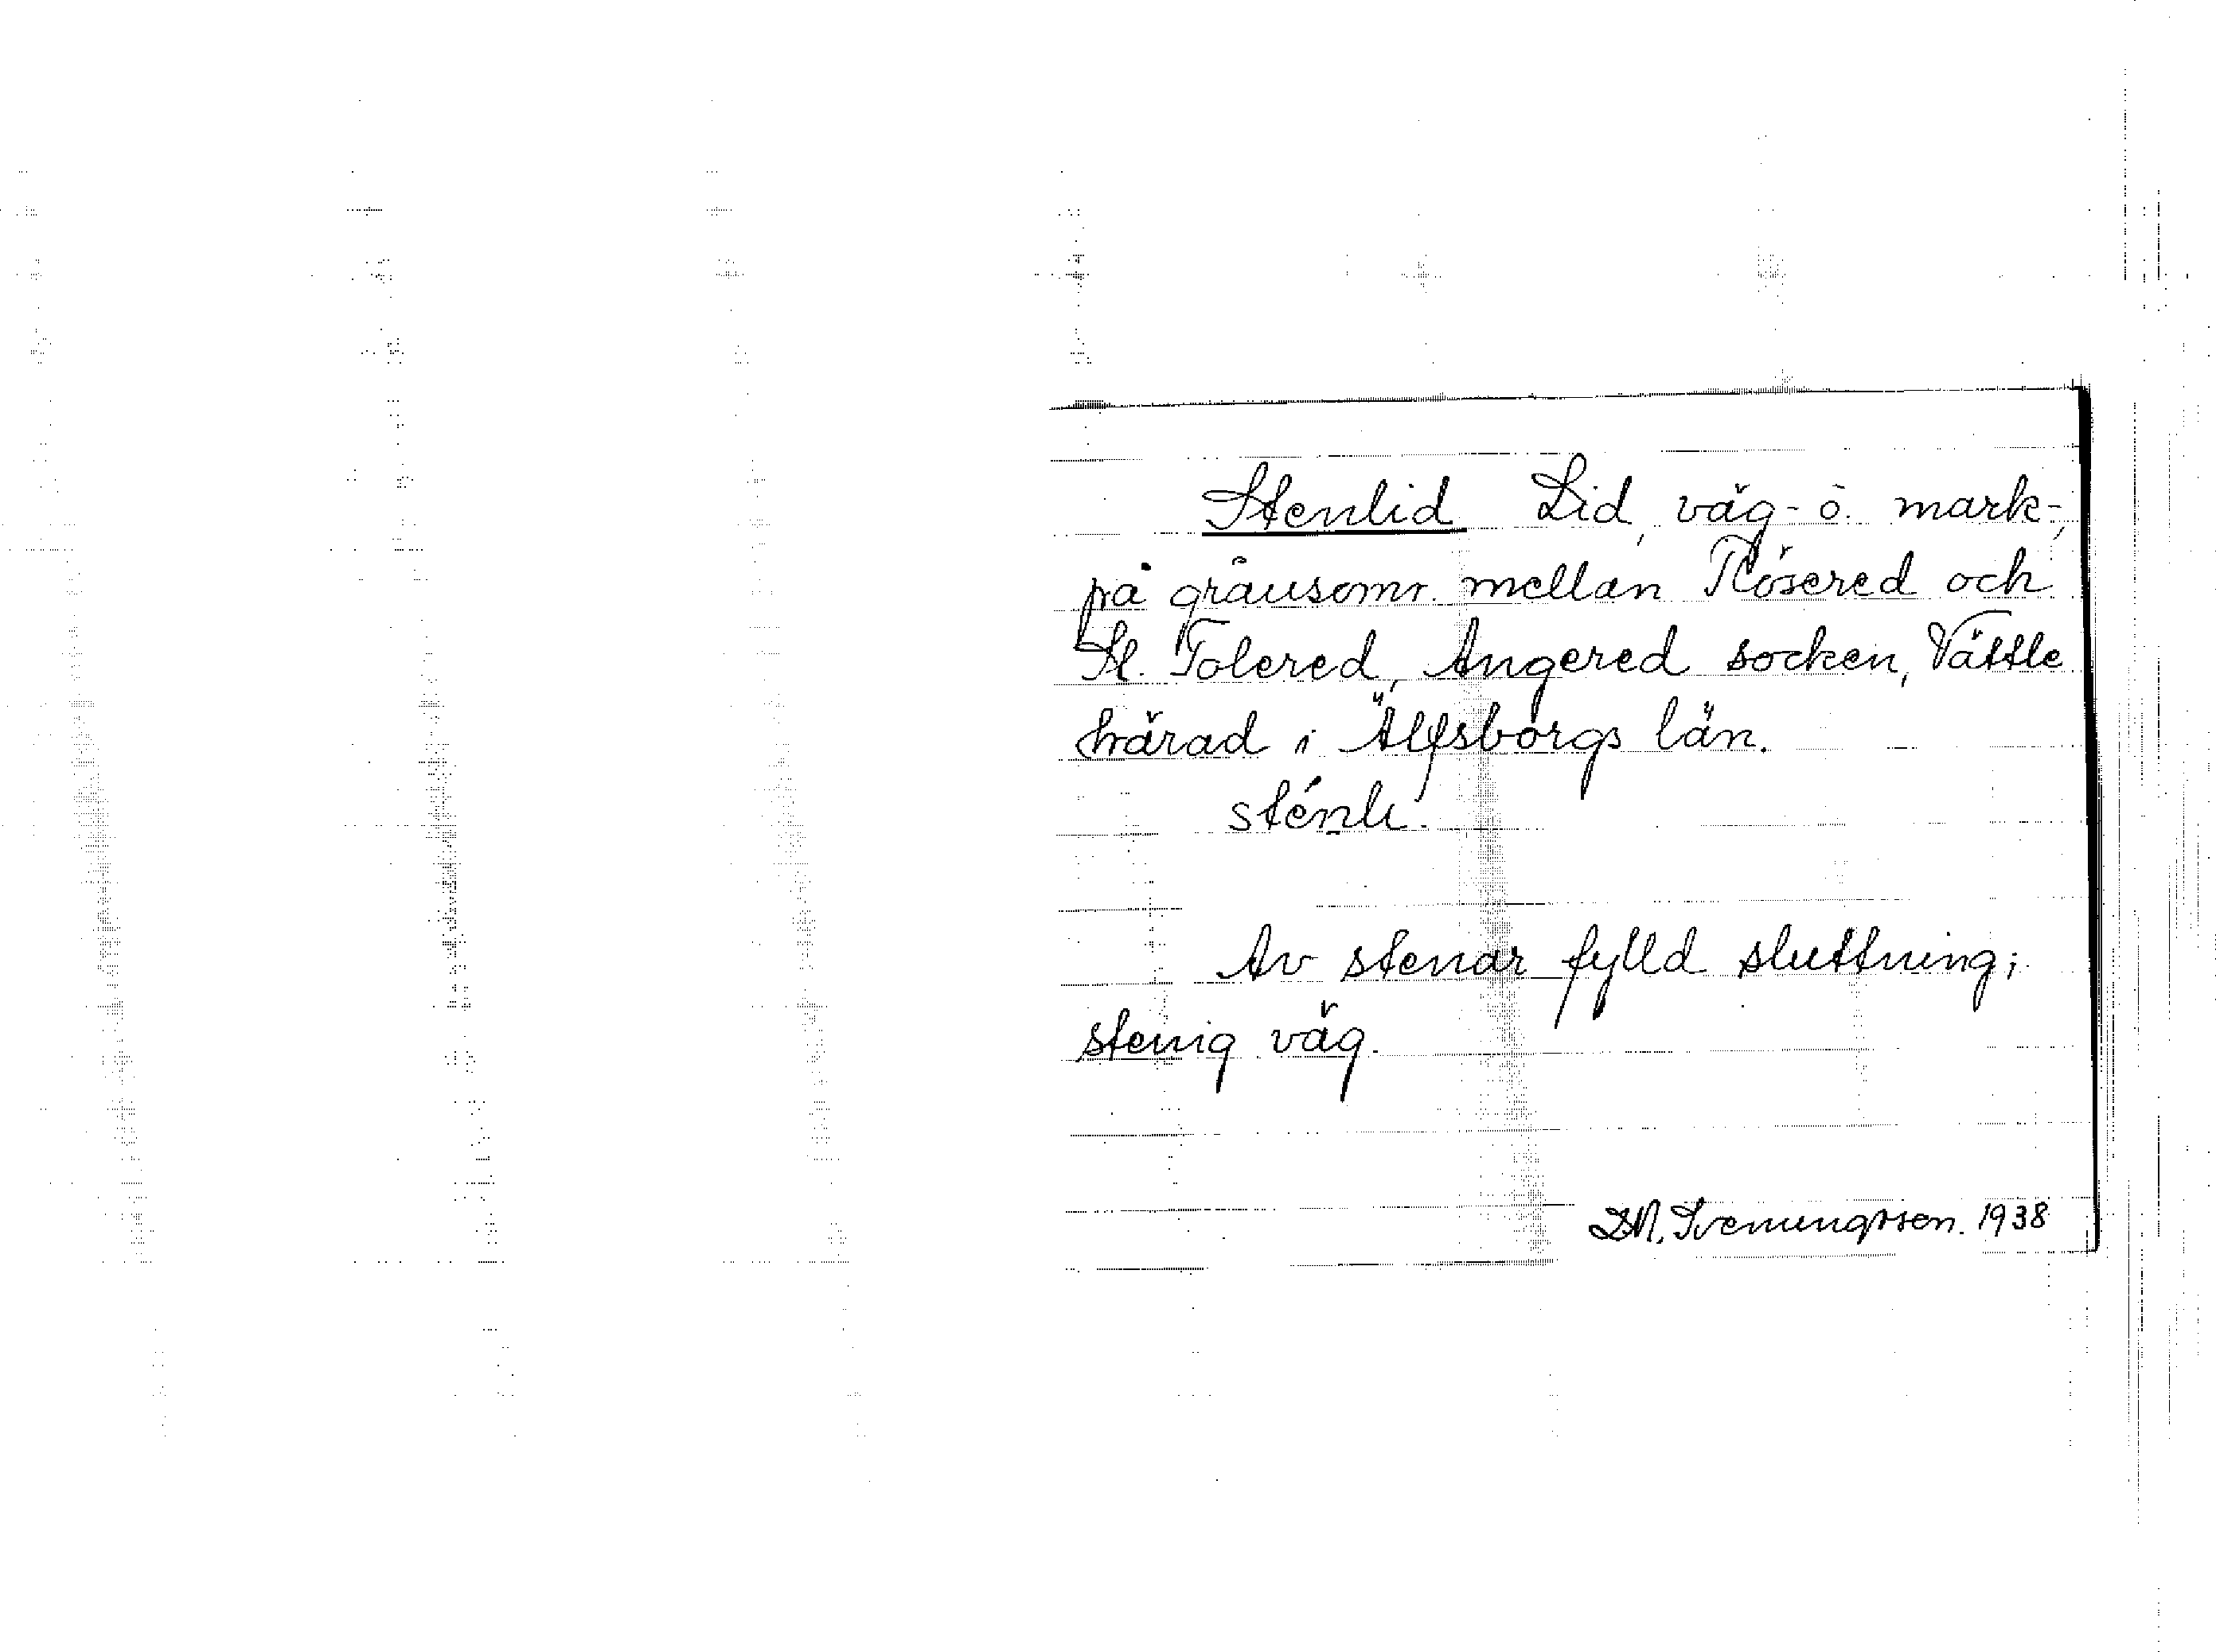 Stenlid Lid, väg- o. mark-,
på gränsomr. mellan Rösered och
St. Tolered, Angered socken, Vättle
härad i Älfsborgs län.
sténli.
Av stenar fylld sluttning;
stenig väg.
Svenungsson. 1938